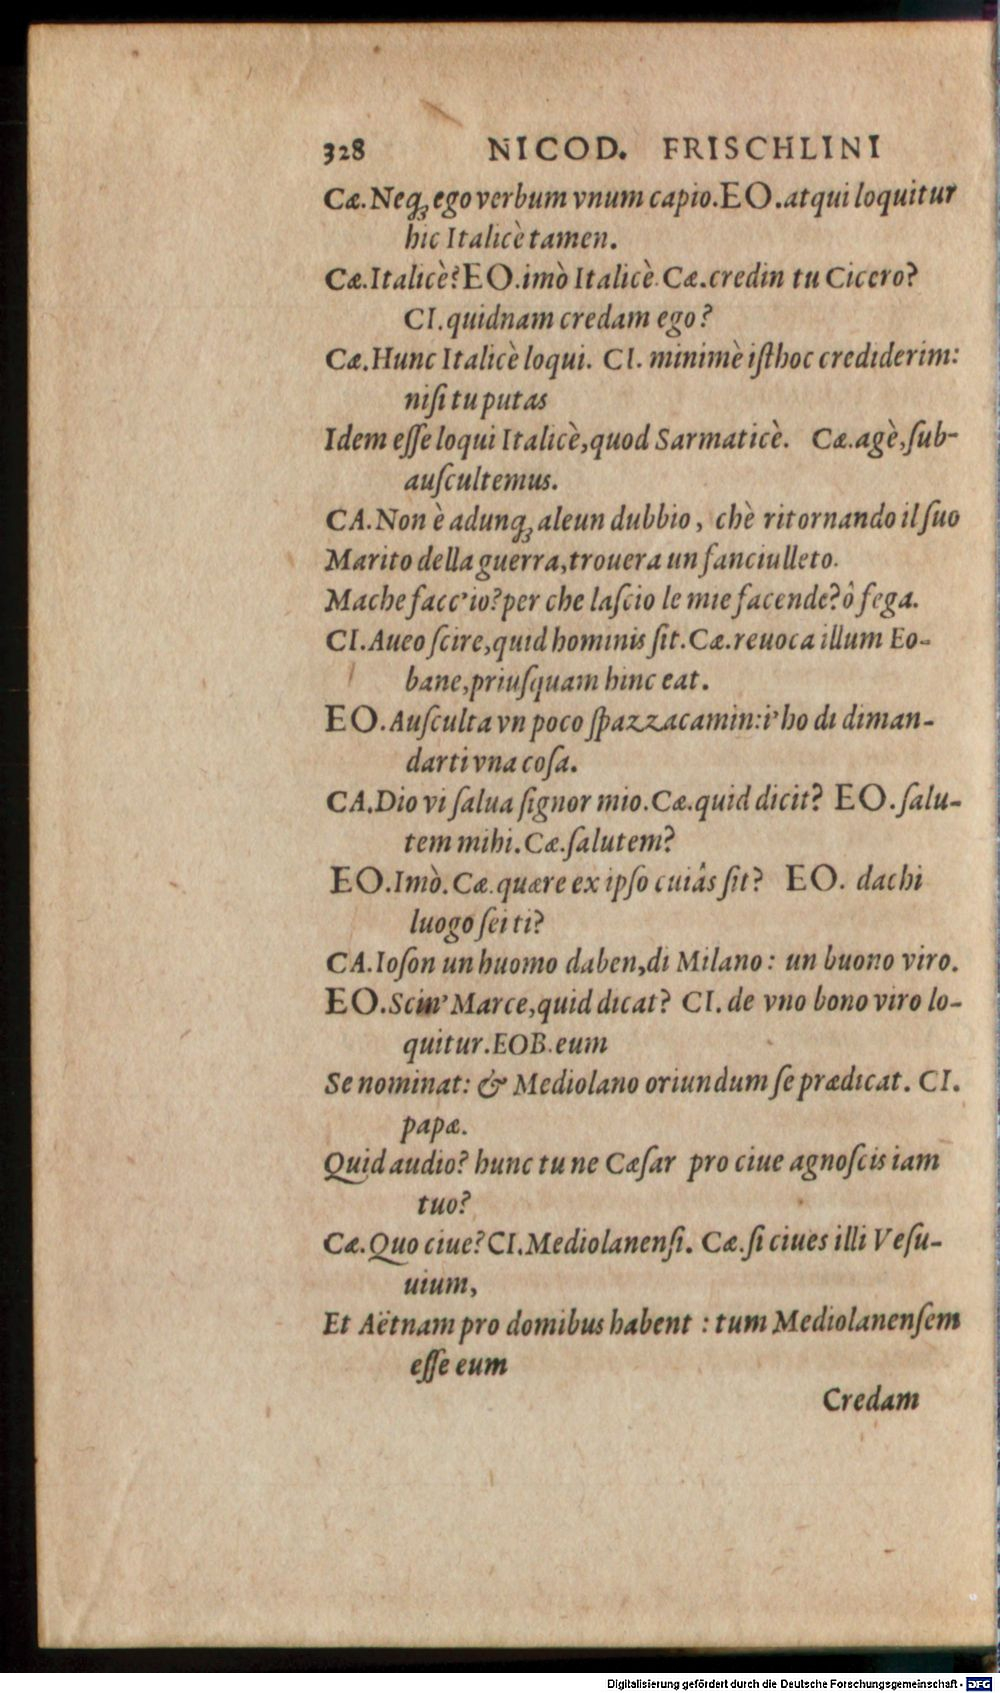 328 NICOD. FRISCHLINI
Cæ. Neqꝫ ego verbum vnum capio. EO. atqui loquitur
hic Italicè tamen.
Cæ. Italicè? EO. imò Italicè. Cæ. credin tu Cicero?
CI. quidnam credam ego?
Cæ. Hunc Italicè loqui. CI. minimè iſthoc crediderim:
niſi tu putas
Idem eſſe loqui Italicè, quod Sarmaticè. Cæ. agè, ſub-
auſcultemus.
CA. Non è adunqꝫ aleun dubbio, chè ritornando il ſuo
Marito della guerra, trouera un fanciulleto.
Mache facc'io? per che laſcio le mie facende? ô fega.
CI. Aueo ſcire, quid hominis ſit. Cæ. reuoca illum Eo-
bane, priuſquam hinc eat.
EO. Auſculta vn poco ſpazzacamin: i' ho di diman-
darti vna coſa.
CA. Dio vi ſalua ſignor mio. Cæ. quid dicit? EO. ſalu-
tem mihi. Cæ. ſalutem?
EO. Imò. Cæ. quære ex ipſo cuiâs ſit? EO. dachi
luogo ſei ti?
CA. Ioſon un huomo daben, di Milano: un buono viro.
EO. Scin' Marce, quid dicat? CI. de vno bono viro lo-
quitur. EOB. eum
Se nominat: & Mediolano oriundum ſe prædicat. CI.
papæ.
Quid audio? hunc tu ne Cæſar pro ciue agnoſcis iam
tuo?
Cæ. Quo ciue? CI. Mediolanenſi. Cæ. ſi ciues illi Veſu-
uium,
Et Aëtnam pro domibus habent : tum Mediolanenſem
eſſe eum
Credam
Digitalisierung gefördert durch die Deutsche Forschungsgemeinschaft - DFG